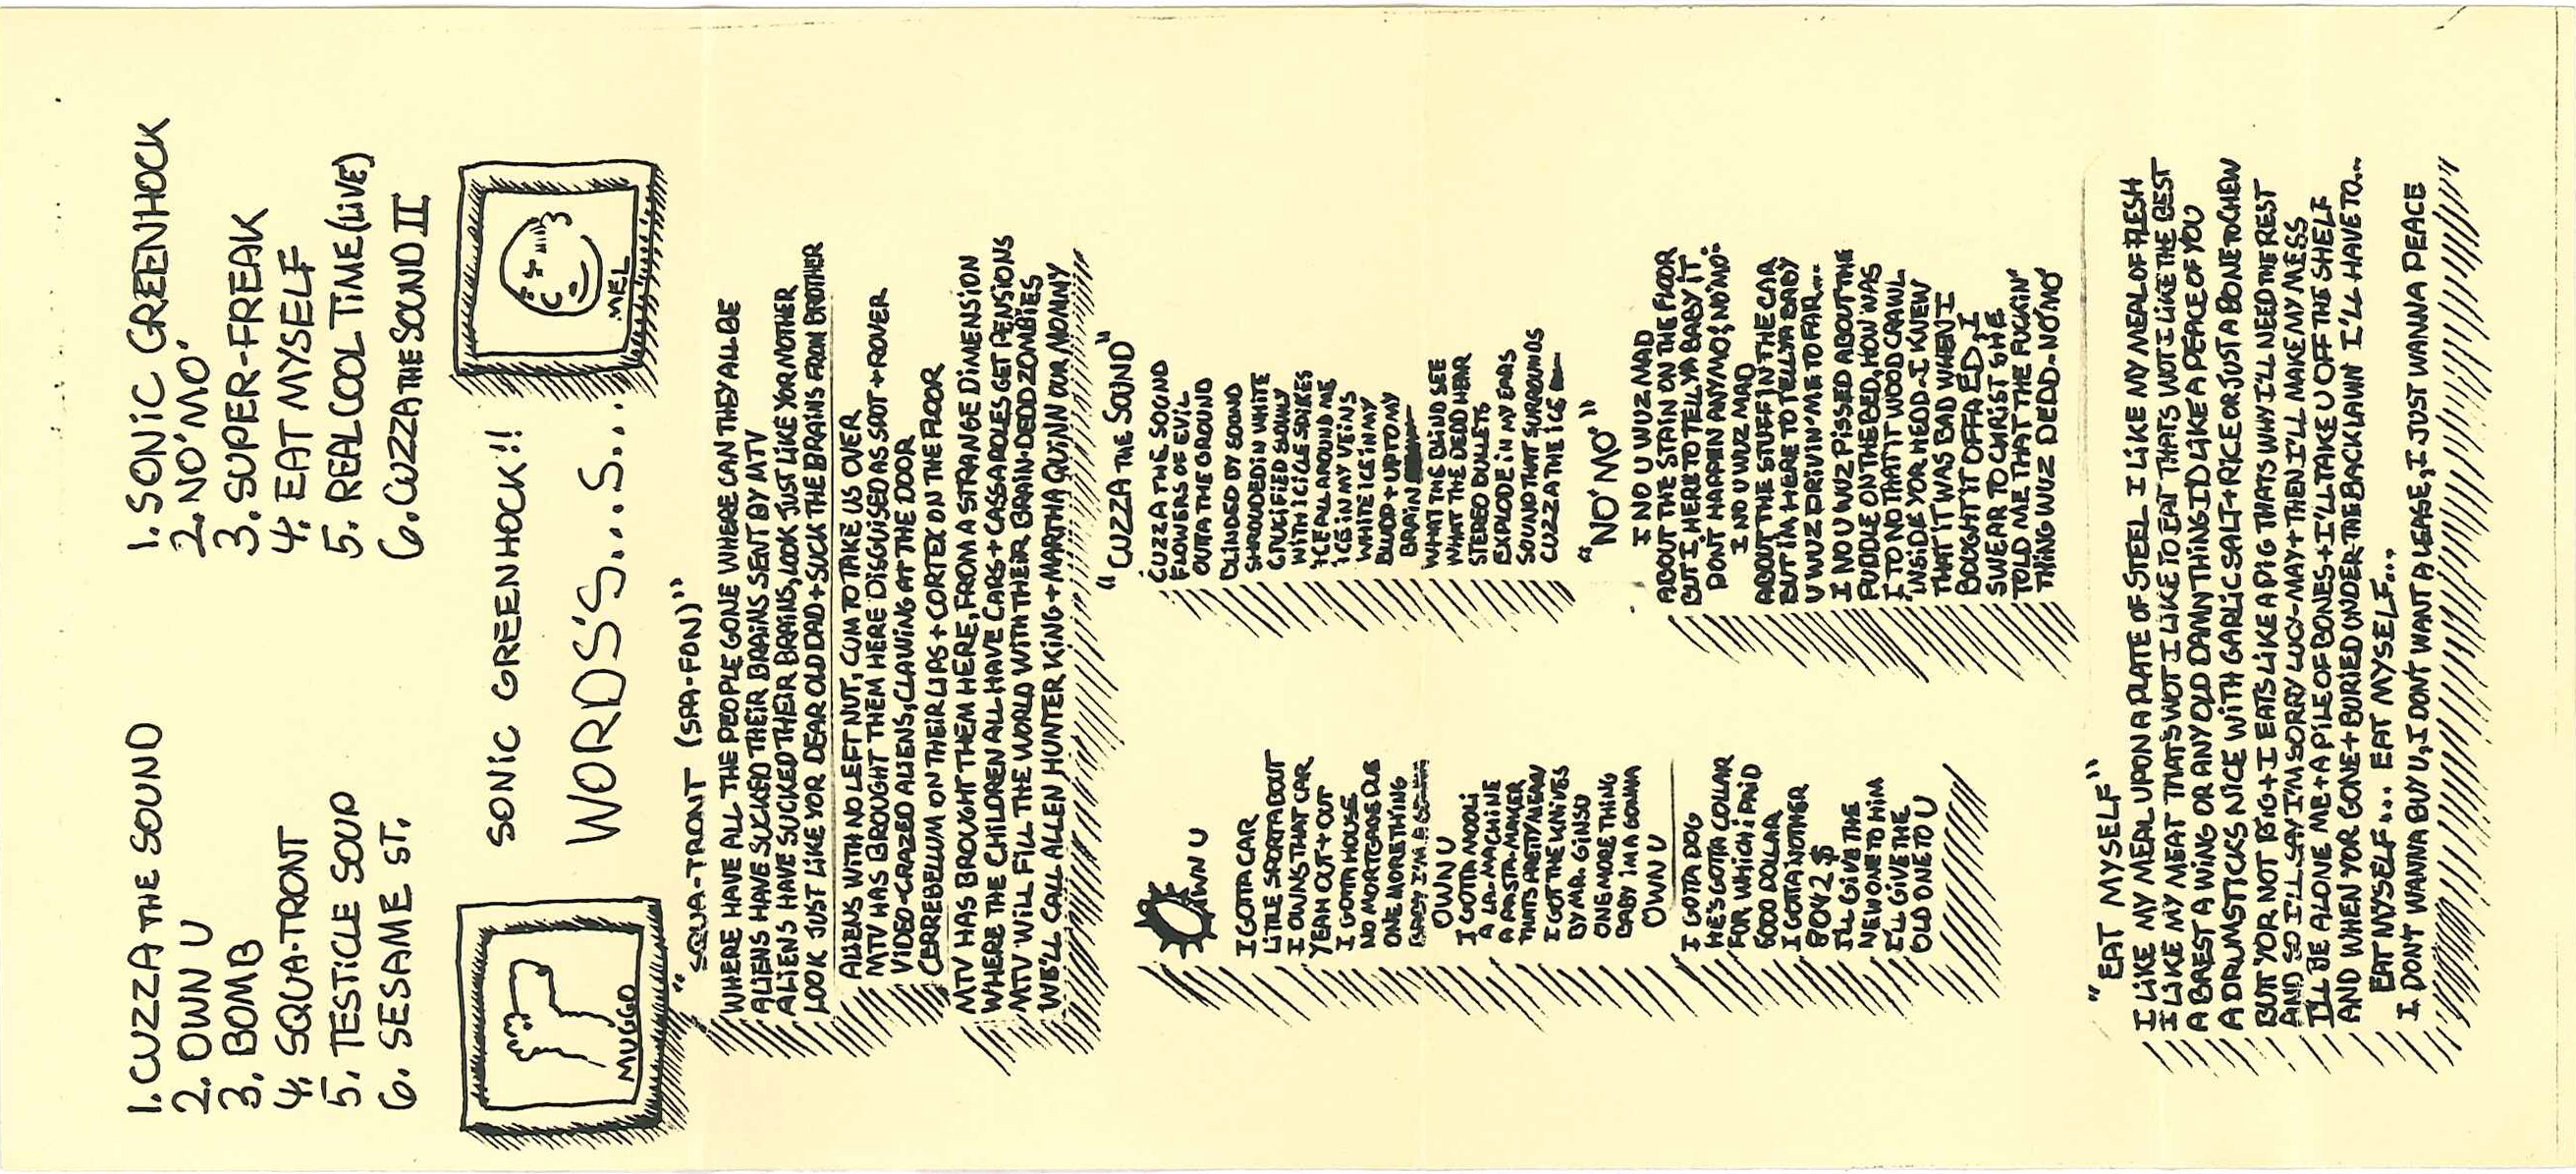 1. CUZZA THE SOUND
2. OWN U
3. BOMB
4. SQUA-TRONT
5. TESTICLE SOUP
6. SESAME ST.
1. SONIC GREENHOCK
2. NO' MO'
3. SUPER-FREAK
4. EAT MYSELF
5. REAL COOL TIME (LIVE)
6. CUZZA THE SOUND II
MUGGO
SONIC GREENHOCK!!
WORD'S...S...
MEL
"SQUA-TRONT (SPA-FON)"
WHERE HAVE ALL THE PEOPLE GONE WHERE CAN THEY ALL BE
ALIENS HAVE SUCKED THEIR BRAINS SENT BY MTV
ALIENS HAVE SUCKED THEIR BRAINS, LOOK JUST LIKE YOR MOTHER
LOOK JUST LIKE YOR DEAR OLD DAD + SUCK THE BRAINS FROM BROTHER
ALIENS WITH NO LEFT NUT, CUM TO TAKE US OVER
MTV HAS BROUGHT THEM HERE DISGUISED AS SPOT + ROVER
VIDEO-CRAZED ALIENS, CLAWING AT THE DOOR
CERREBELLUM ON THEIR LIPS + CORTEX ON THE FLOOR
MTV HAS BROUGHT THEM HERE, FROM A STRANGE DIMENSION
WHERE THE CHILDREN ALL HAVE CARS + CASSAROLES GET PENSIONS
MTV WILL FILL THE WORLD WITH THEIR BRAIN-DEDD ZOMBIES
WE'LL CALL ALLEN HUNTER KING + MARTHA QUINN OUR MOMMY
OWN U
I GOTTA CAR
LITTLE SPORTABOUT
I OWNS THAT CAR
YEAH OUT + OUT
I GOTTA HOUSE
NO MORTGAGE DUE
ONE MORE THING
OWN U
I GOTTA MOOLI
A LA-MACHINE
A PASTA-MAKER
THATS PRETTY MEAN
I GOT THE KNIVES
BY MR. GINSU
ONE MORE THING
BABY IM A GONNA
OWN U
I GOTA DOG
HE'S GOTTA COLLAR
FOR WHICH I PAID
GOOD DOLLAR
I GOTTA NOTHER
BOW 2 $
I'LL GIVE THE
NEW ONE TO HIM
I'LL GIVE THE
OLD ONE TO U
"CUZZA THE SOUND"
CUZZA THE SOUND
FLOWERS OF EVIL
OUTA THE GROUND
BLINDED BY SOUND
SHROUDED IN WHITE
CRUCIFIED SLOWLY
WITH ICICLE SPIKES
ICE ALL AROUND ME
ICE IN MY VEINS
WHITE ICE IN MY
BLUDD + UP TO MY
BRAIN
WHAT THE BLIND SEE
WHAT THE DEDD HEAR
STEREO BULLETS
EXPLODE IN MY EARS
SOUND THAT SURROUNDS
CUZZA THE ICE
"NO' MO'"
I NO U WUZ MAD
ABOUT THE STAIN ON THE FLOOR
BUT I, HERE TO TELL YA BABY IT
DONT HAPPEN ANYMO', NO MO'
I NO U WUZ MAD
ABOUT THE STUFF IN THE CAR
BUT IM HERE TO TELL YA BABY
U WUZ DRIVIN' ME TO FAR...
I NO U WUZ PISSED ABOUT THE
PUDDLE ON THE BED, HOW WAS
I TO NO THAT IT WOOD CRAWL
INSIDE YOR HEDD - I KNEW
THAT IT WAS BAD WHEN I
BOUGHT IT OFFA ED, I
SWEAR TO CHRIST SHE
TOLD ME THAT THE FUCKIN'
THING WUZ DEDD - NO' MO'
"EAT MYSELF"
I LIKE MY MEAL UPON A PLATE OF STEEL I LIKE MY MEAL OF FLESH
I LIKE MY MEAT THAT'S WOT I LIKE TO EAT THAT'S WOT I LIKE THE BEST
A BREST A WING OR ANY OLD DAMN THING I'D LIKE A PEACE OF YOU
A DRUMSTICKS NICE WITH GARLIC SALT + RICE OR JUST A BONE TO CHEW
BUT YOR NOT BIG + I EATS LIKE A PIG THATS WHY I'LL NEED THE REST
AND SO I'LL SAY I'M SORRY LUCY-MAY + THEN I'LL MAKE MY MESS
I'LL BE ALONE ME + A PILE OF BONES + I'LL TAKE U OFF THE SHELF
AND WHEN YOR GONE + BURIED UNDER THE BACK LAWN I'LL HAVE TO...
EAT MYSELF... EAT MYSELF...
I DONT WANNA BUY U, I DONT WANT A LEASE, I JUST WANNA PEACE